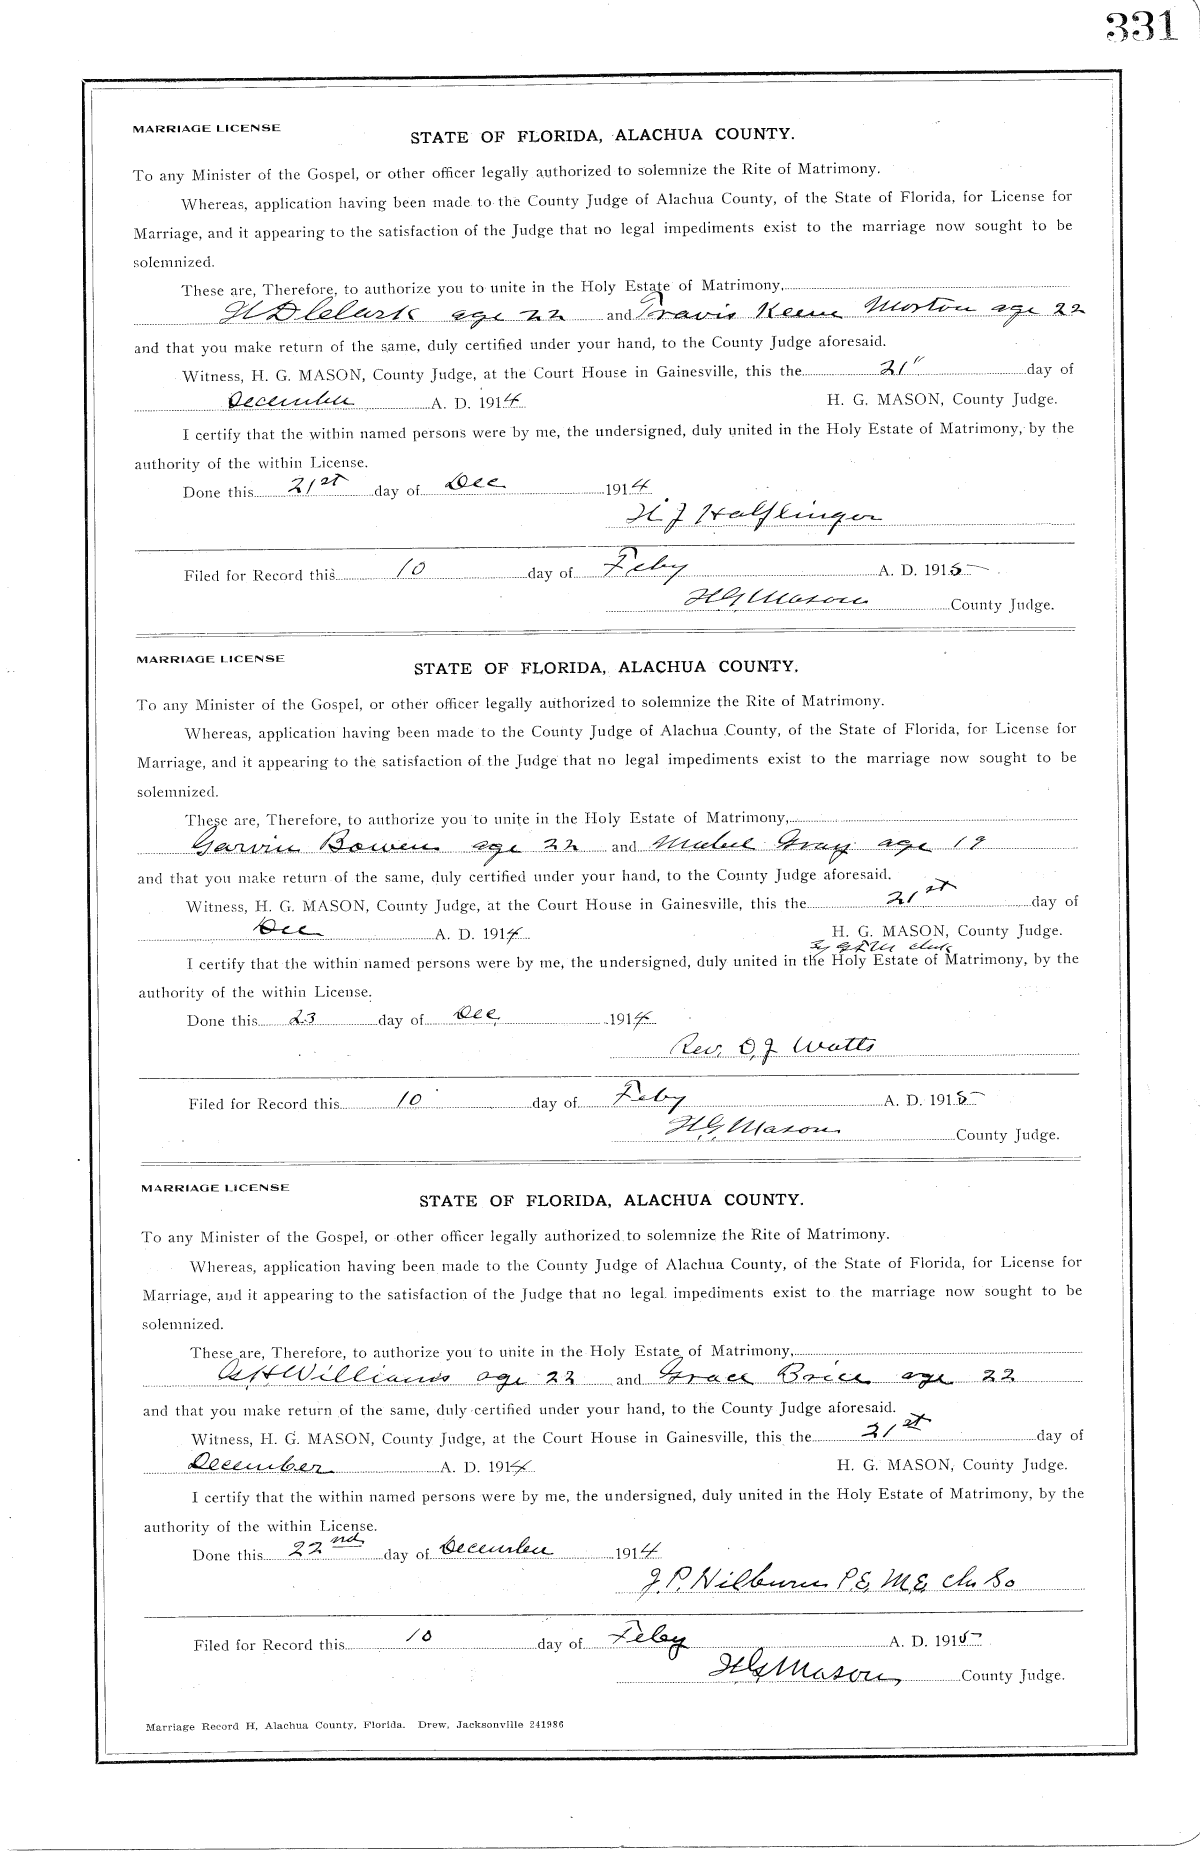 331
MARRIAGE LICENSE
STATE OF FLORIDA, ALACHUA COUNTY.
To any Minister of the Gospel, or other officer legally authorized to solemnize the Rite of Matrimony.
Whereas, application having been made to the County Judge of Alachua County, of the State of Florida, for License for
Marriage, and it appearing to the satisfaction of the Judge that no legal impediments exist to the marriage now sought to be
solemnized.
These are, Therefore, to authorize you to unite in the Holy Estate of Matrimony,
H D Clark age 22 and Travis Keene Morton age 22
and that you make return of the same, duly certified under your hand, to the County Judge aforesaid.
Witness, H. G. MASON, County Judge, at the Court House in Gainesville, this the 21" day of
December A. D. 1914 H. G. MASON, County Judge.
I certify that the within named persons were by me, the undersigned, duly united in the Holy Estate of Matrimony, by the
authority of the within License.
Done this 21st day of Dec 1914
H. J Halflinger
Filed for Record this 10 day of Feby A. D. 1915
H G Mason County Judge.
MARRIAGE LICENSE
STATE OF FLORIDA, ALACHUA COUNTY.
To any Minister of the Gospel, or other officer legally authorized to solemnize the Rite of Matrimony.
Whereas, application having been made to the County Judge of Alachua County, of the State of Florida, for License for
Marriage, and it appearing to the satisfaction of the Judge that no legal impediments exist to the marriage now sought to be
solemnized.
These are, Therefore, to authorize you to unite in the Holy Estate of Matrimony,
Garvin Bowen age 22 and Mabel Gray age 19
and that you make return of the same, duly certified under your hand, to the County Judge aforesaid.
Witness, H. G. MASON, County Judge, at the Court House in Gainesville, this the 21st day of
Dec A. D. 1914 H. G. MASON, County Judge.
By clerk
I certify that the within named persons were by me, the undersigned, duly united in the Holy Estate of Matrimony, by the
authority of the within License.
Done this 23 day of Dec 1914
Rev. D, J Watts
Filed for Record this 10 day of Feby A. D. 1915
H. G. Mason County Judge.
MARRIAGE LICENSE
STATE OF FLORIDA, ALACHUA COUNTY.
To any Minister of the Gospel, or other officer legally authorized to solemnize the Rite of Matrimony.
Whereas, application having been made to the County Judge of Alachua County, of the State of Florida, for License for
Marriage, and it appearing to the satisfaction of the Judge that no legal impediments exist to the marriage now sought to be
solemnized.
These are, Therefore, to authorize you to unite in the Holy Estate of Matrimony,
Williams age 22 and Grace Brice age 22
and that you make return of the same, duly certified under your hand, to the County Judge aforesaid.
Witness, H. G. MASON, County Judge, at the Court House in Gainesville, this the 21st day of
December A. D. 1914 H. G. MASON, County Judge.
I certify that the within named persons were by me, the undersigned, duly united in the Holy Estate of Matrimony, by the
authority of the within License.
Done this 22nd day of December 1914
J. P. Hilburn P. E, M. E, Ch. So
Filed for Record this 10 day of Feby A. D. 1915
H G Mason, County Judge.
Marriage Record H, Alachua County, Florida. Drew, Jacksonville 241986